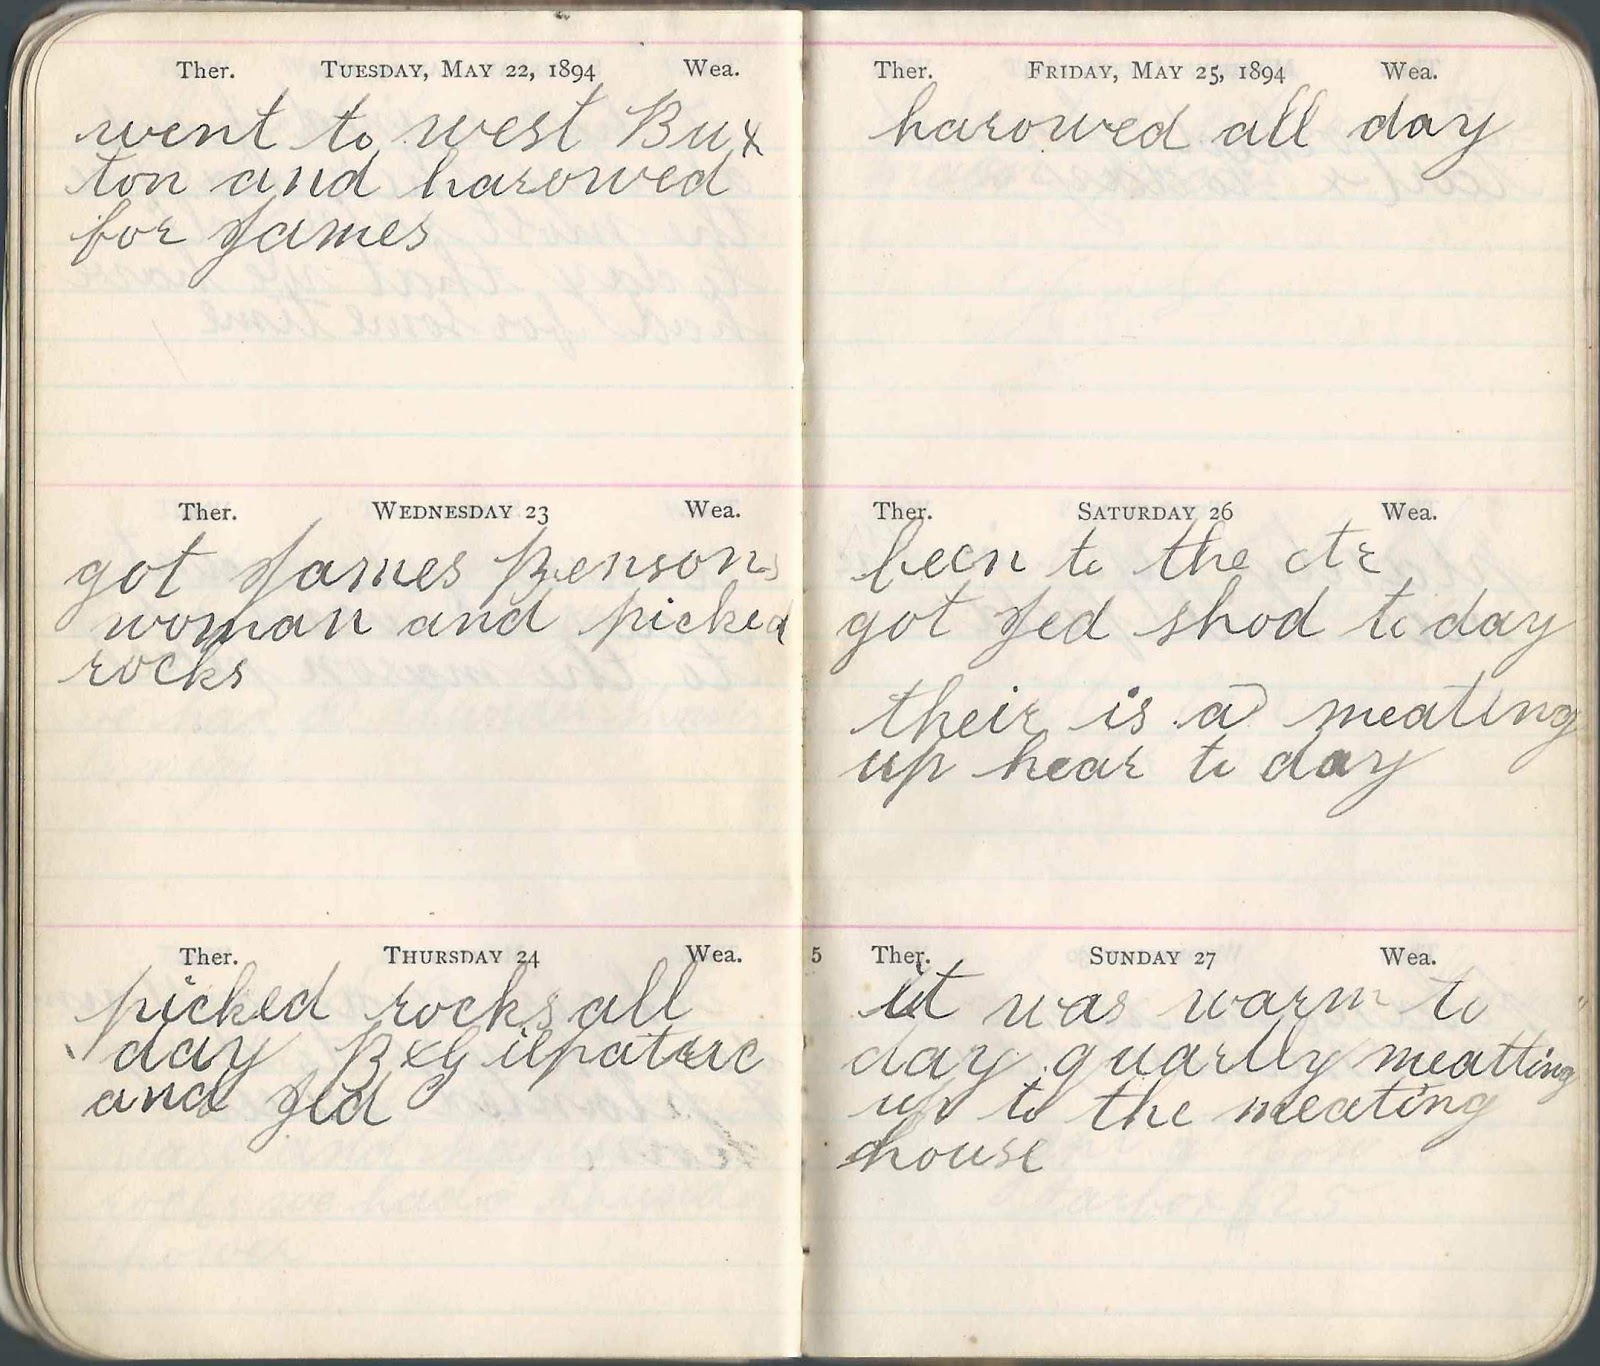 Ther. TUESDAY, MAY 22, 1894 Wea.
went to west Bux
ton and harowed
for James
Ther. WEDNESDAY 23 Wea.
got James Bensons
woman and picked
rocks
Ther. THURSDAY 24 Wea.
picked rocks all
day
and Jed
Ther. FRIDAY, MAY 25, 1894 Wea.
harowed all day
Ther. SATURDAY 26 Wea.
been to the
got Jed shod to day
their is a meating
up hear to day
5 Ther. SUNDAY 27 Wea.
it was warm to
day quartly meatting
up to the meating
house